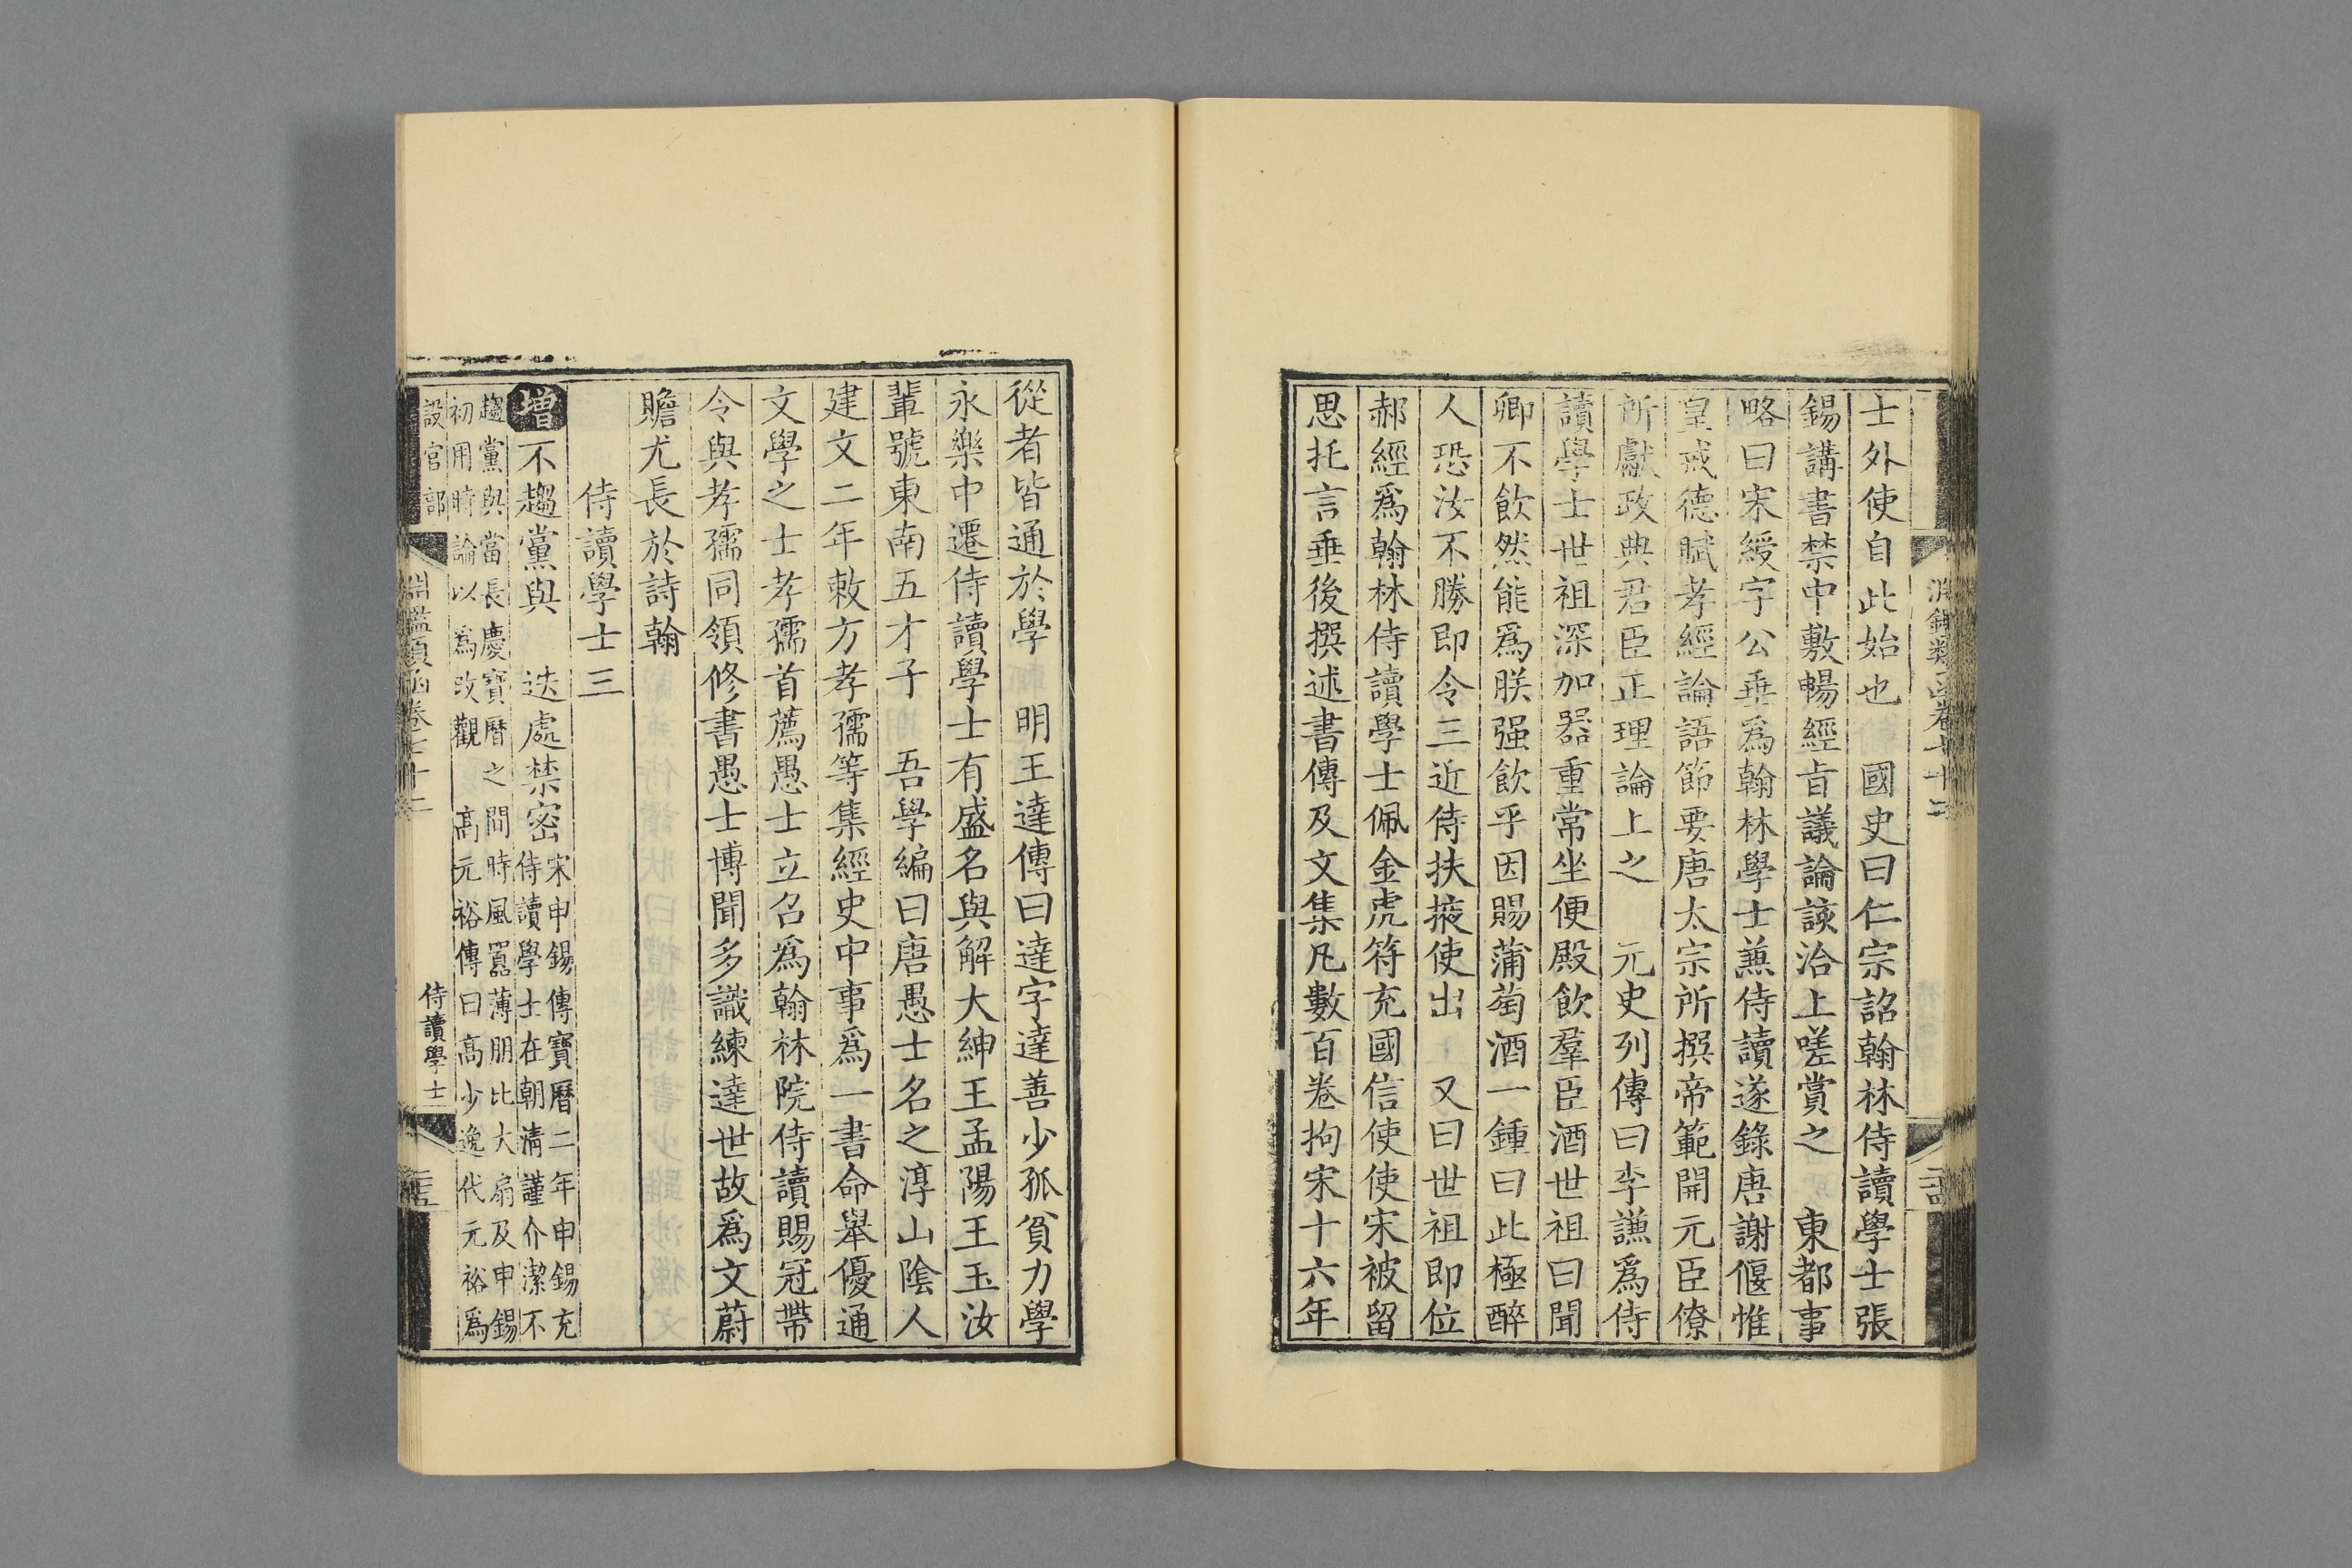 淵鑑類函卷七十二
士外使自此始也　國史曰仁宗詔翰林侍讀學士張
錫講書禁中敷暢經旨議論該洽上嗟賞之　東都事
略曰宋綬字公垂爲翰林學士兼侍讀遂錄唐謝偃惟
皇戒德賦孝經論語節要唐太宗所撰帝範開元臣僚
所獻政典君臣正理論上之　元史列傳曰李謙爲侍
讀學士世祖深加器重常坐便殿飲羣臣酒世祖曰聞
卿不飲然能爲朕强飲乎因賜蒲萄酒一鍾曰此極醉
人恐汝不勝即令三近侍扶掖使出　又曰世祖即位
郝經爲翰林侍讀學士佩金虎符充國信使使宋被留
思托言垂後撰述書傳及文集凡數百卷拘宋十六年
從者皆通於學　明王達傳曰達字達善少孤貧力學
永樂中遷侍讀學士有盛名與解大紳王孟陽王玉汝
輩號東南五才子　吾學編曰唐愚士名之淳山陰人
建文二年敕方孝孺等集經史中事爲一書命舉優通
文學之士孝孺首薦愚士立召爲翰林院侍讀賜冠帶
令與孝孺同領修書愚士博聞多識練達世故爲文蔚
贍尤長於詩翰
侍讀學士三
增不趨黨與　迭處禁密宋申錫傳寶曆二年申錫充
侍讀學士在朝清謹介潔不
趨黨與當長慶寶曆之間時風囂薄朋比大扇及申錫
初用時論以爲改觀　高元裕傳曰高少逸代元裕爲
設官部
淵鑑類函卷七十二
侍讀學士
二十五